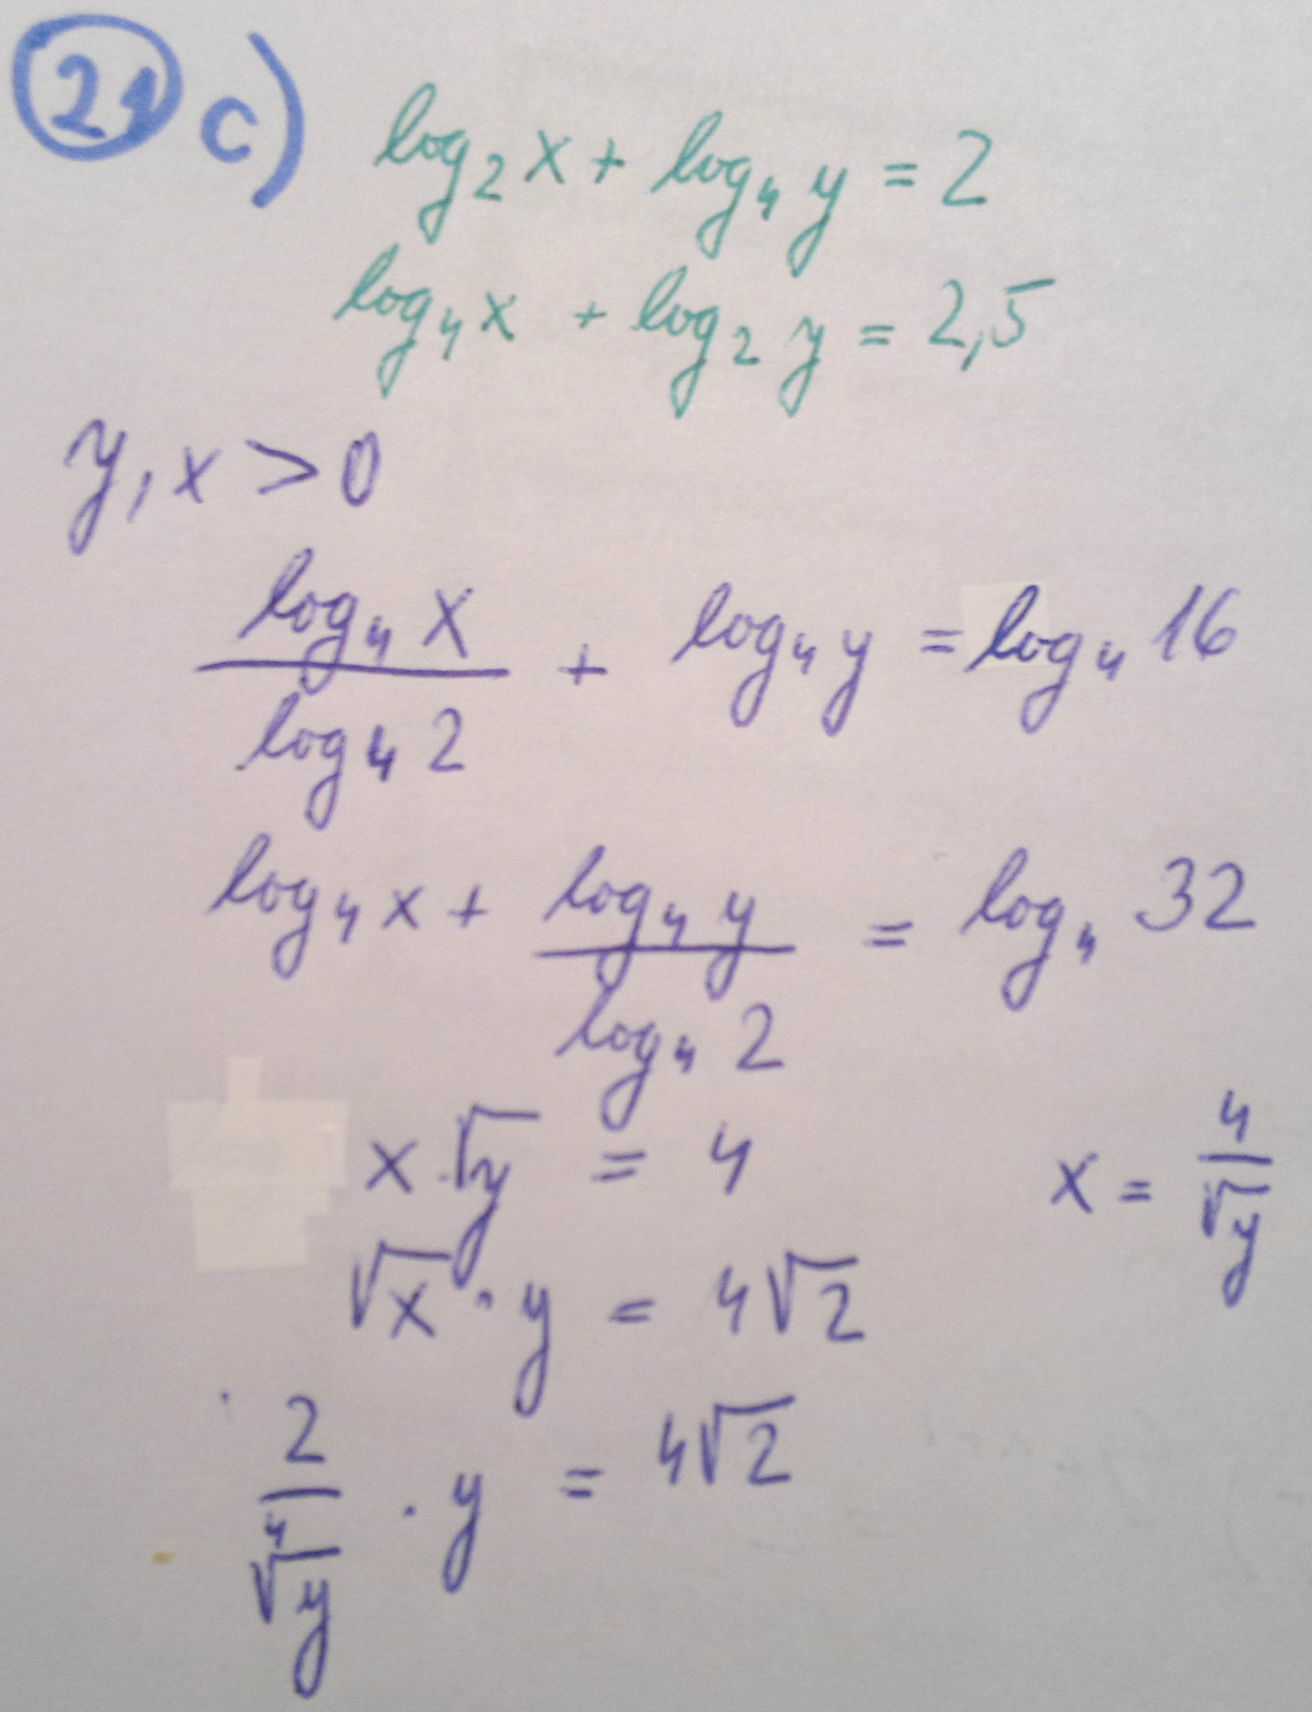 21 c) log₂ x + log₄ y = 2
log₄ x + log₂ y = 2,5
y, x > 0
log₄ x / log₄ 2 + log₄ y = log₄ 16
log₄ x + log₄ y / log₄ 2 = log₄ 32
x · √y = 4    x = 4/√y
√x · y = 4√2
2/∜y · y = 4√2